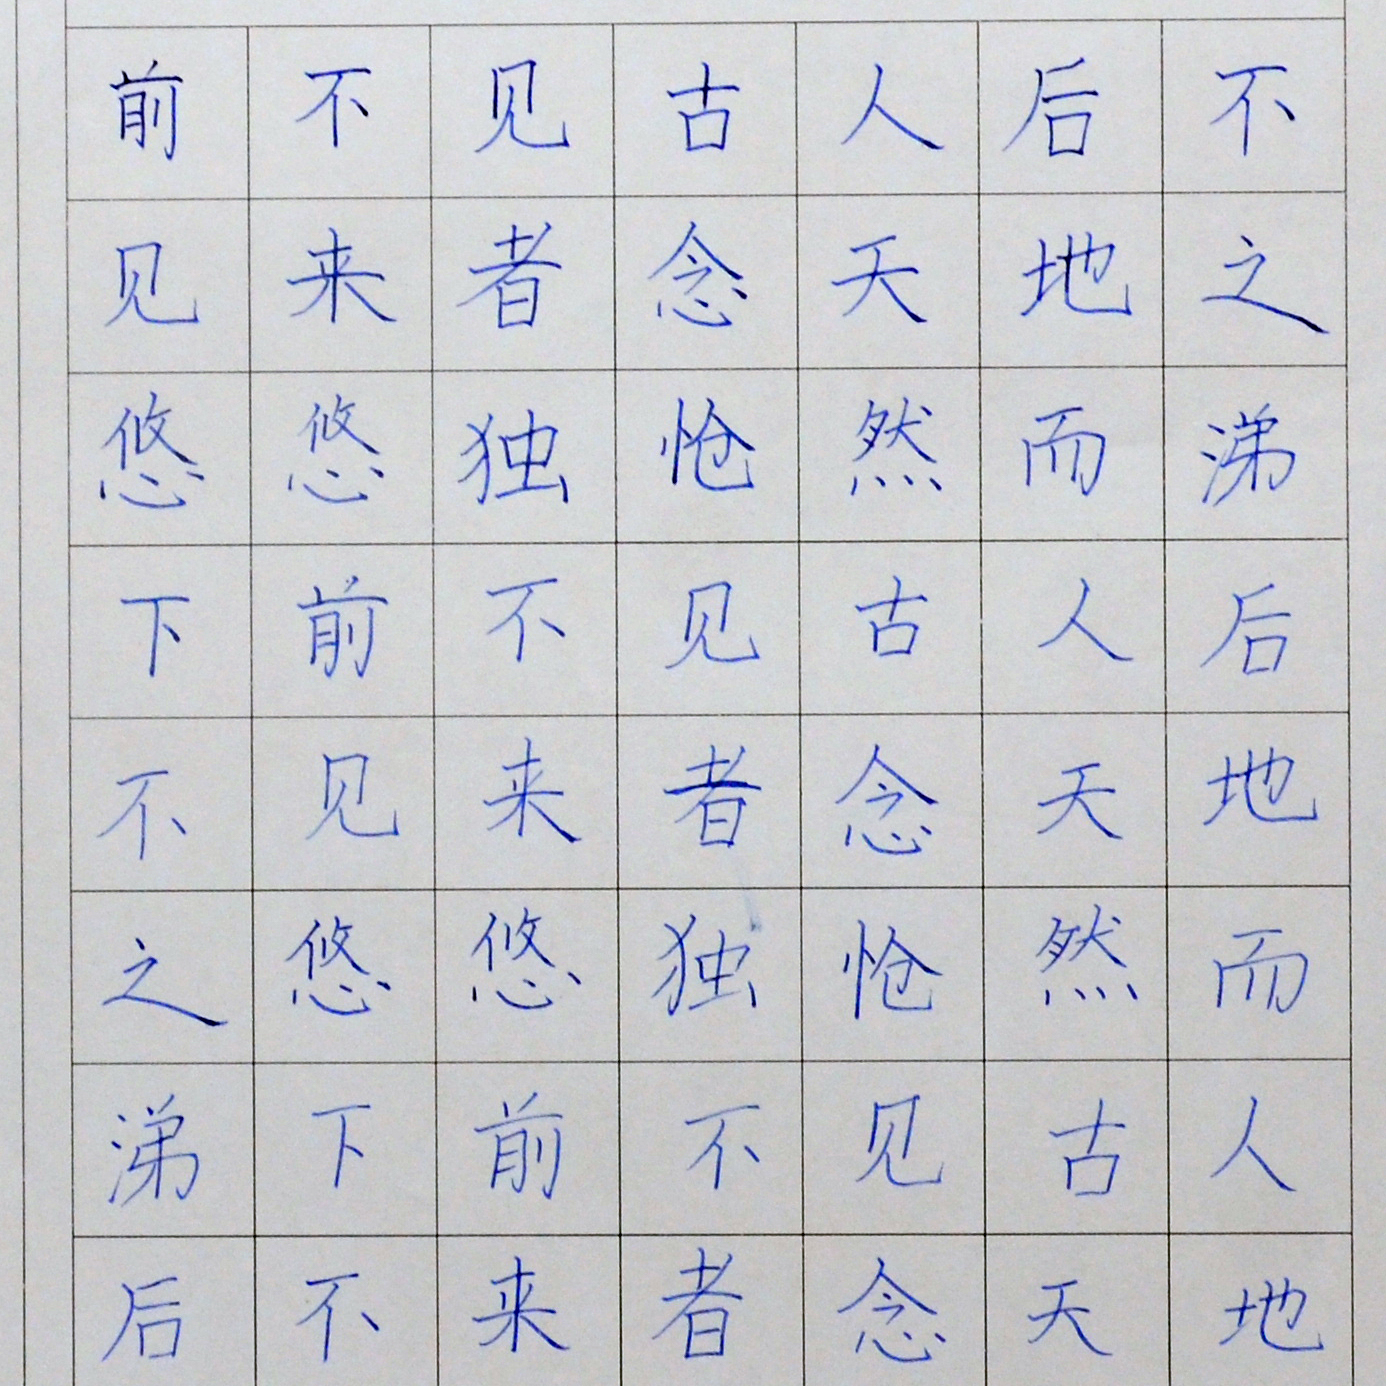 前不见古人后不
见来者念天地之
悠悠独怆然而涕
下前不见古人后
不见来者念天地
之悠悠独怆然而
涕下前不见古人
后不来者念天地